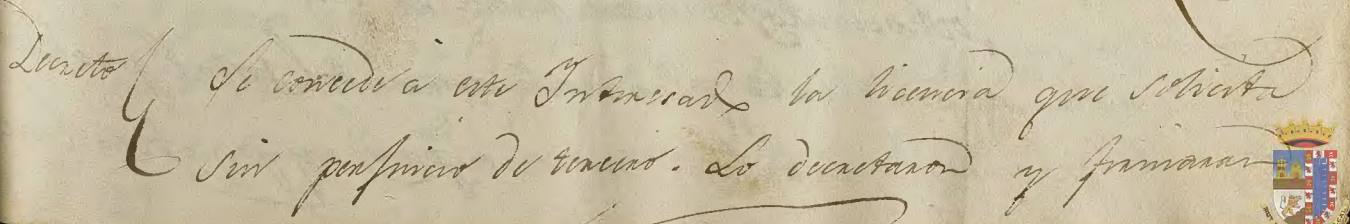 Decreto { Se concede a este Interesado la licencia que solicita
sin perjuicio de tercero. Lo decretaron y firmaron